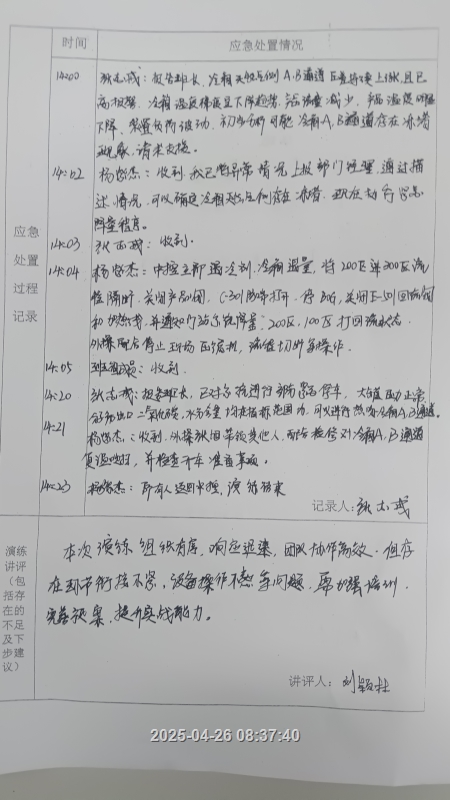 时间 应急处置情况
14:00 张志成：报告班长，冷箱天然气侧A、B通道压差持续上涨，且已
高报警，冷箱温度梯度呈下降趋势，流量减少，温度明显
下降，装置负荷波动，初步分析可能冷箱A、B通道存在冻堵
现象，请求支援。
14:02 杨 杰：收到，我已将异常情况上报部门经理，通过描
述情况，可以确定冷箱天然气侧存在冻堵，现在执行紧急
降量程序。
应急
处置
过程
记录
14:03 张志成：收到。
14:04 杨 杰：中控立即 冷剂、冷箱 量，将200区 300区流
程隔断，关闭产品阀，C-301防喘打开，停 ，关闭E-501回流阀
和 ，并通知 降量；200区，100区打回流状态。
外操配合停止现场压缩机，流程切断等操作。
14:05 班组成员：收到。
14:20 张志成：报告班长，已对 进行 紧急停车，
出口二氧化碳，水 含量均在指标范围内，可以进行 冷箱A、B通道。
14:21 杨 杰：收到，外操 带领其他人，配合检修对冷箱A、B通道
复温吹扫，并检查开车准备事项。
14:23 杨 杰：所有人返回中控，演练结束
记录人：张志成
演练
讲评
（包
括存
在的
不足
及下
步建
议）
本次演练组织有序，响应迅速，团队协作高效。但存
在环节衔接不紧，设备操作不熟等问题，需加强培训，
完善预案，提升实战能力。
讲评人：刘
2025-04-26 08:37:40